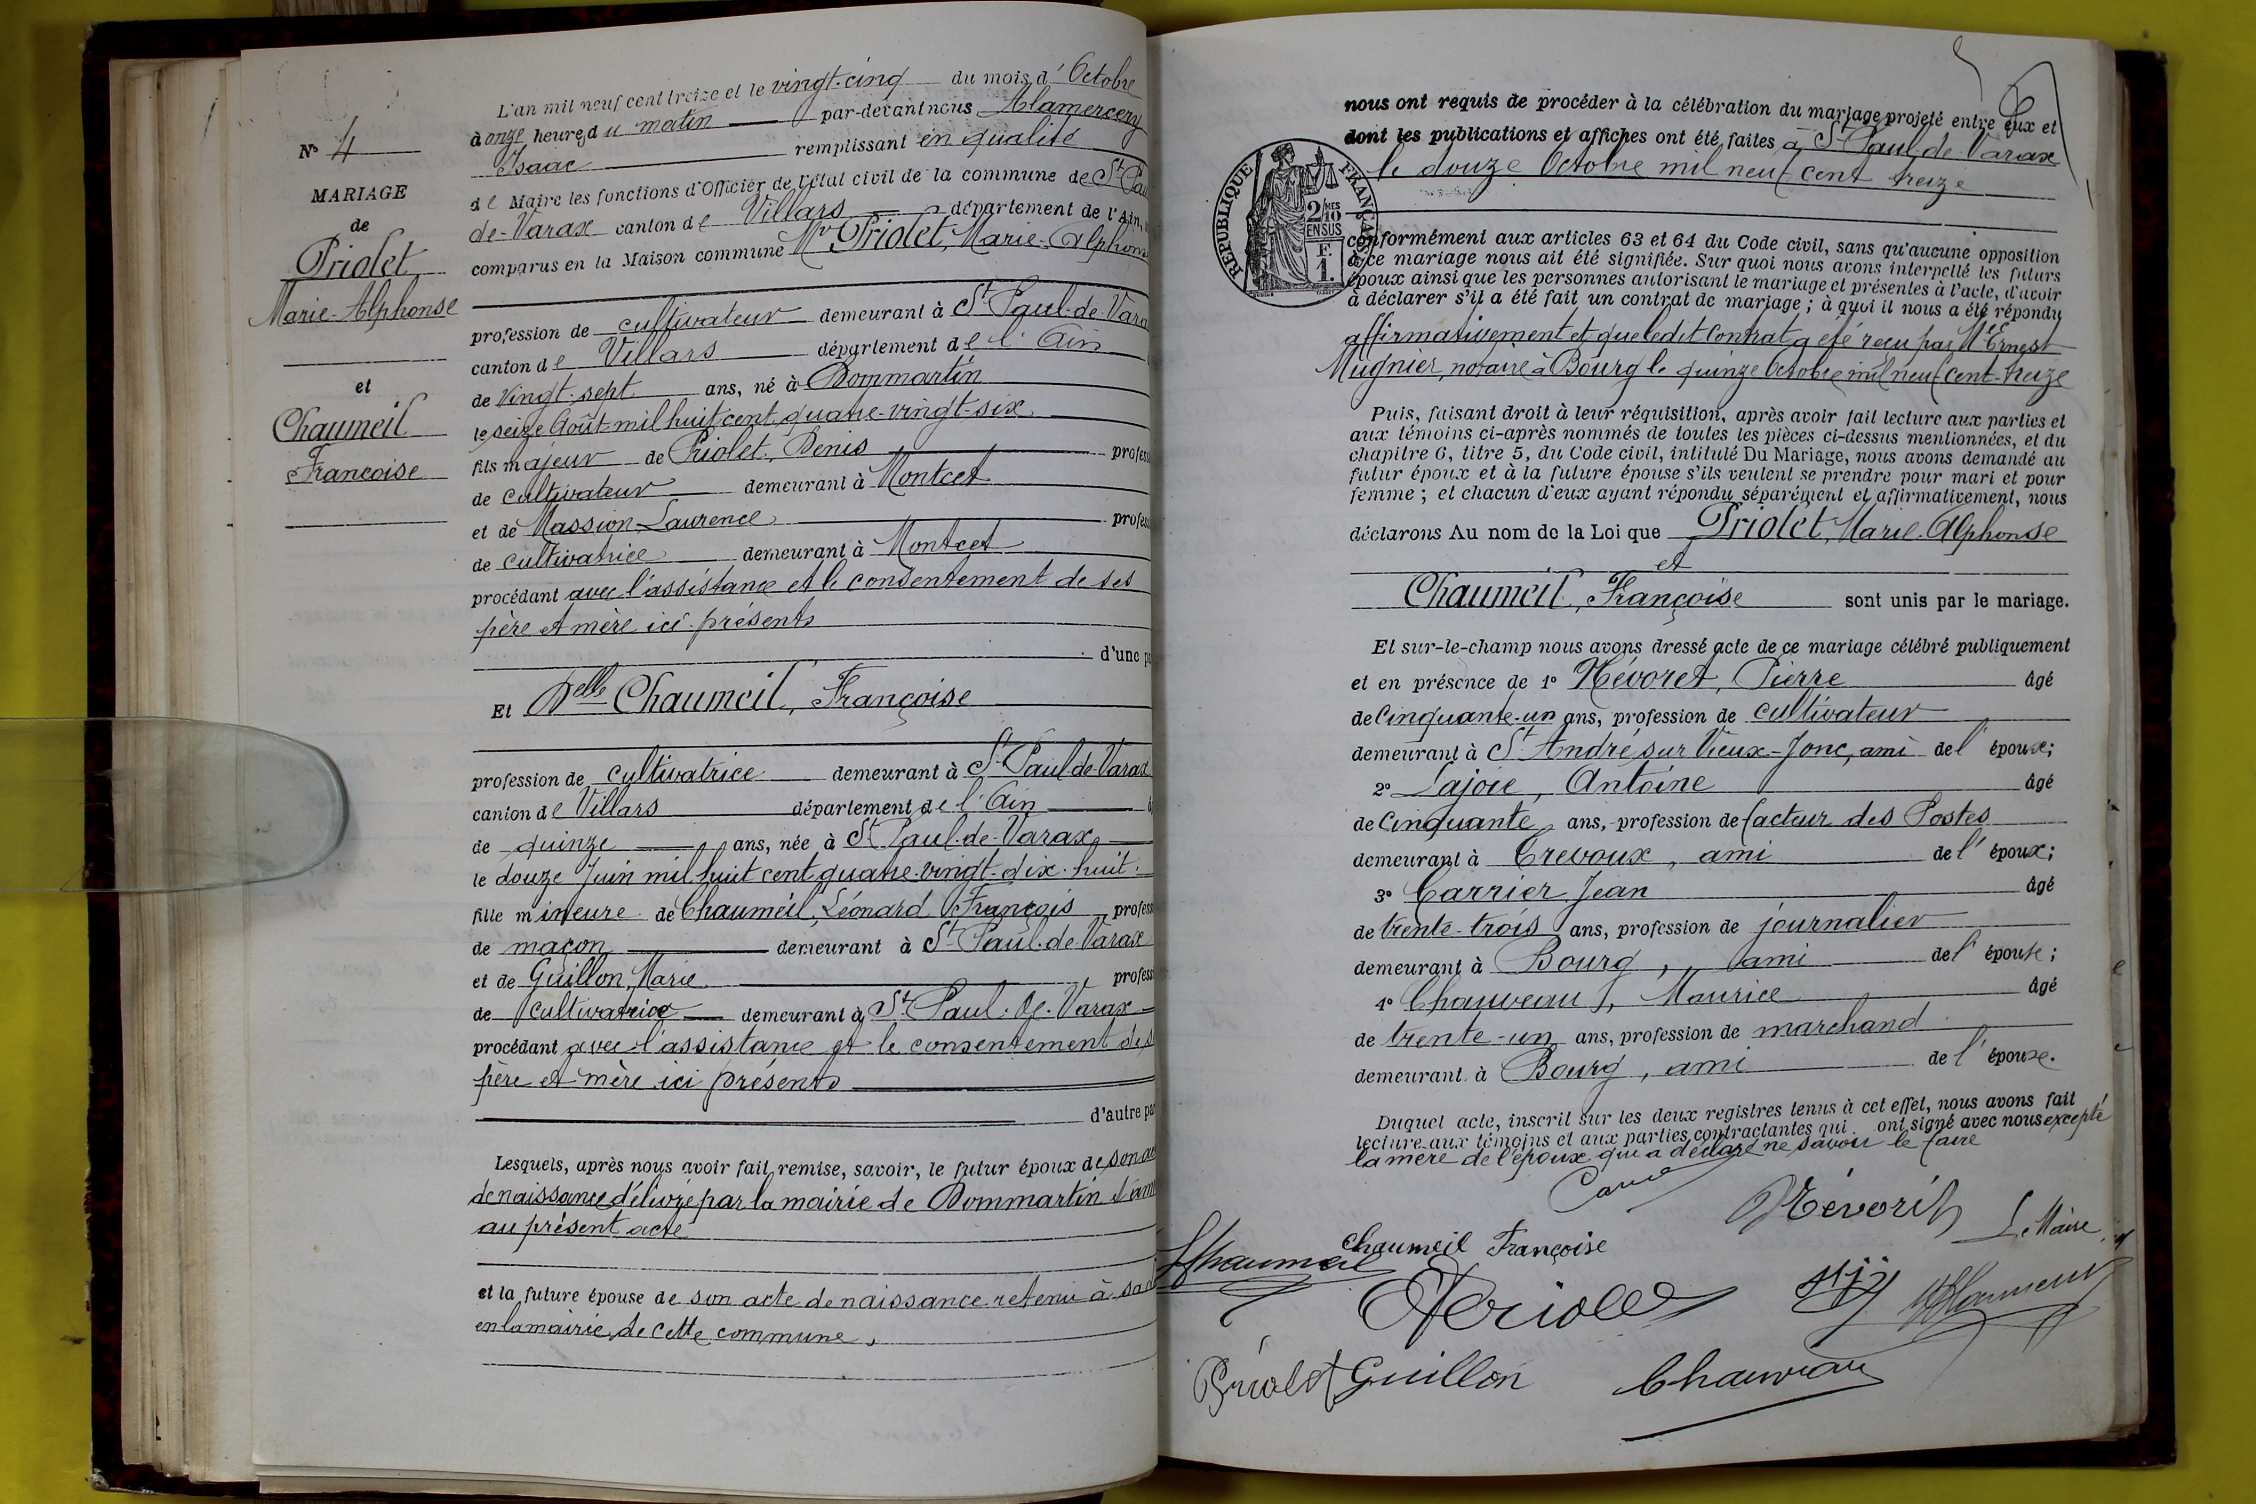 L'an mil neuf cent treize et le vingt-cinq du mois d'Octobre
à onze heures du matin par-devant nous Alamercery
Isaac remplissant en qualité
de Maire les fonctions d'Officier de l'état civil de la commune de St Paul
de-Varax canton de Villars département de l'Ain,
comparus en la Maison commune Mr Priolet, Marie-Alphons
profession de cultivateur demeurant à St Paul-de-Vara
canton de Villars département de l'Ain
de vingt-sept ans, né à Dommartin
le seize Août mil huit cent quatre-vingt-six
fils majeur de Priolet, Denis profess
de cultivateur demeurant à Montcet
et de Massion Laurence profess
de cultivatrice demeurant à Montcet
procédant avec l'assistance et le consentement de ses
père et mère ici présents
d'une pa
Et Delle Chaumeil, Françoise
profession de cultivatrice demeurant à St Paul-de-Varax
canton de Villars département de l'Ain
de quinze ans, née à St Paul-de-Varax
le douze Juin mil huit cent quatre-vingt-dix-huit
fille mineure de Chaumeil, Léonard François profess
de maçon demeurant à St Paul-de-Varax
et de Guillon, Marie profess
de cultivatrice demeurant à St Paul-de-Varax
procédant avec l'assistance et le consentement de s
père et mère ici présents
d'autre par
Lesquels, après nous avoir fait remise, savoir, le futur époux de son ac
de naissance délivré par la mairie de Dommartin
au présent acte
et la future épouse de son acte de naissance retenu à sa
en la mairie de cette commune,
No 4
MARIAGE
de
Priolet,
Marie-Alphonse
et
Chaumeil
Françoise
nous ont requis de procéder à la célébration du mariage projeté entre eux et
dont les publications et affiches ont été faites à St Paul-de-Varax
le douze Octobre mil neuf cent treize
RÉPUBLIQUE FRANÇAISE
2/10 MES
EN SUS
F.
1.
conformément aux articles 63 et 64 du Code civil, sans qu'aucune opposition
à ce mariage nous ait été signifiée. Sur quoi nous avons interpellé les futurs
époux ainsi que les personnes autorisant le mariage et présentes à l'acte, d'avoir
à déclarer s'il a été fait un contrat de mariage ; à quoi il nous a été répondu
affirmativement et que ledit contrat a été reçu par Me Ernest
Mugnier, notaire à Bourg le quinze Octobre mil neuf cent-treize
Puis, faisant droit à leur réquisition, après avoir fait lecture aux parties et
aux témoins ci-après nommés de toutes les pièces ci-dessus mentionnées, et du
chapitre 6, titre 5, du Code civil, intitulé Du Mariage, nous avons demandé au
futur époux et à la future épouse s'ils veulent se prendre pour mari et pour
femme ; et chacun d'eux ayant répondu séparément et affirmativement, nous
déclarons Au nom de la Loi que Priolet, Marie-Alphonse
et
Chaumeil, Françoise sont unis par le mariage.
Et sur-le-champ nous avons dressé acte de ce mariage célébré publiquement
et en présence de 1° Névoret, Pierre âgé
de Cinquante-un ans, profession de cultivateur
demeurant à St André sur Vieux-Jonc, ami de l'époux;
2° Lajoie, Antoine âgé
de Cinquante ans, profession de facteur des Postes
demeurant à Trevoux, ami de l'époux;
3° Carrier Jean âgé
de trente-trois ans, profession de journalier
demeurant à Bourg, ami de l'épouse;
4° Chauveau, Maurice âgé
de trente-un ans, profession de marchand
demeurant à Bourg, ami de l'épouse.
Duquel acte, inscrit sur les deux registres tenus à cet effet, nous avons fait
lecture aux témoins et aux parties contractantes qui ont signé avec nous excepté
la mère de l'époux qui a déclaré ne savoir le faire
Névorét
Le Maire,
Chaumeil Françoise
Chaumeil
Priolet
Priolet
Guillon
Chauveau